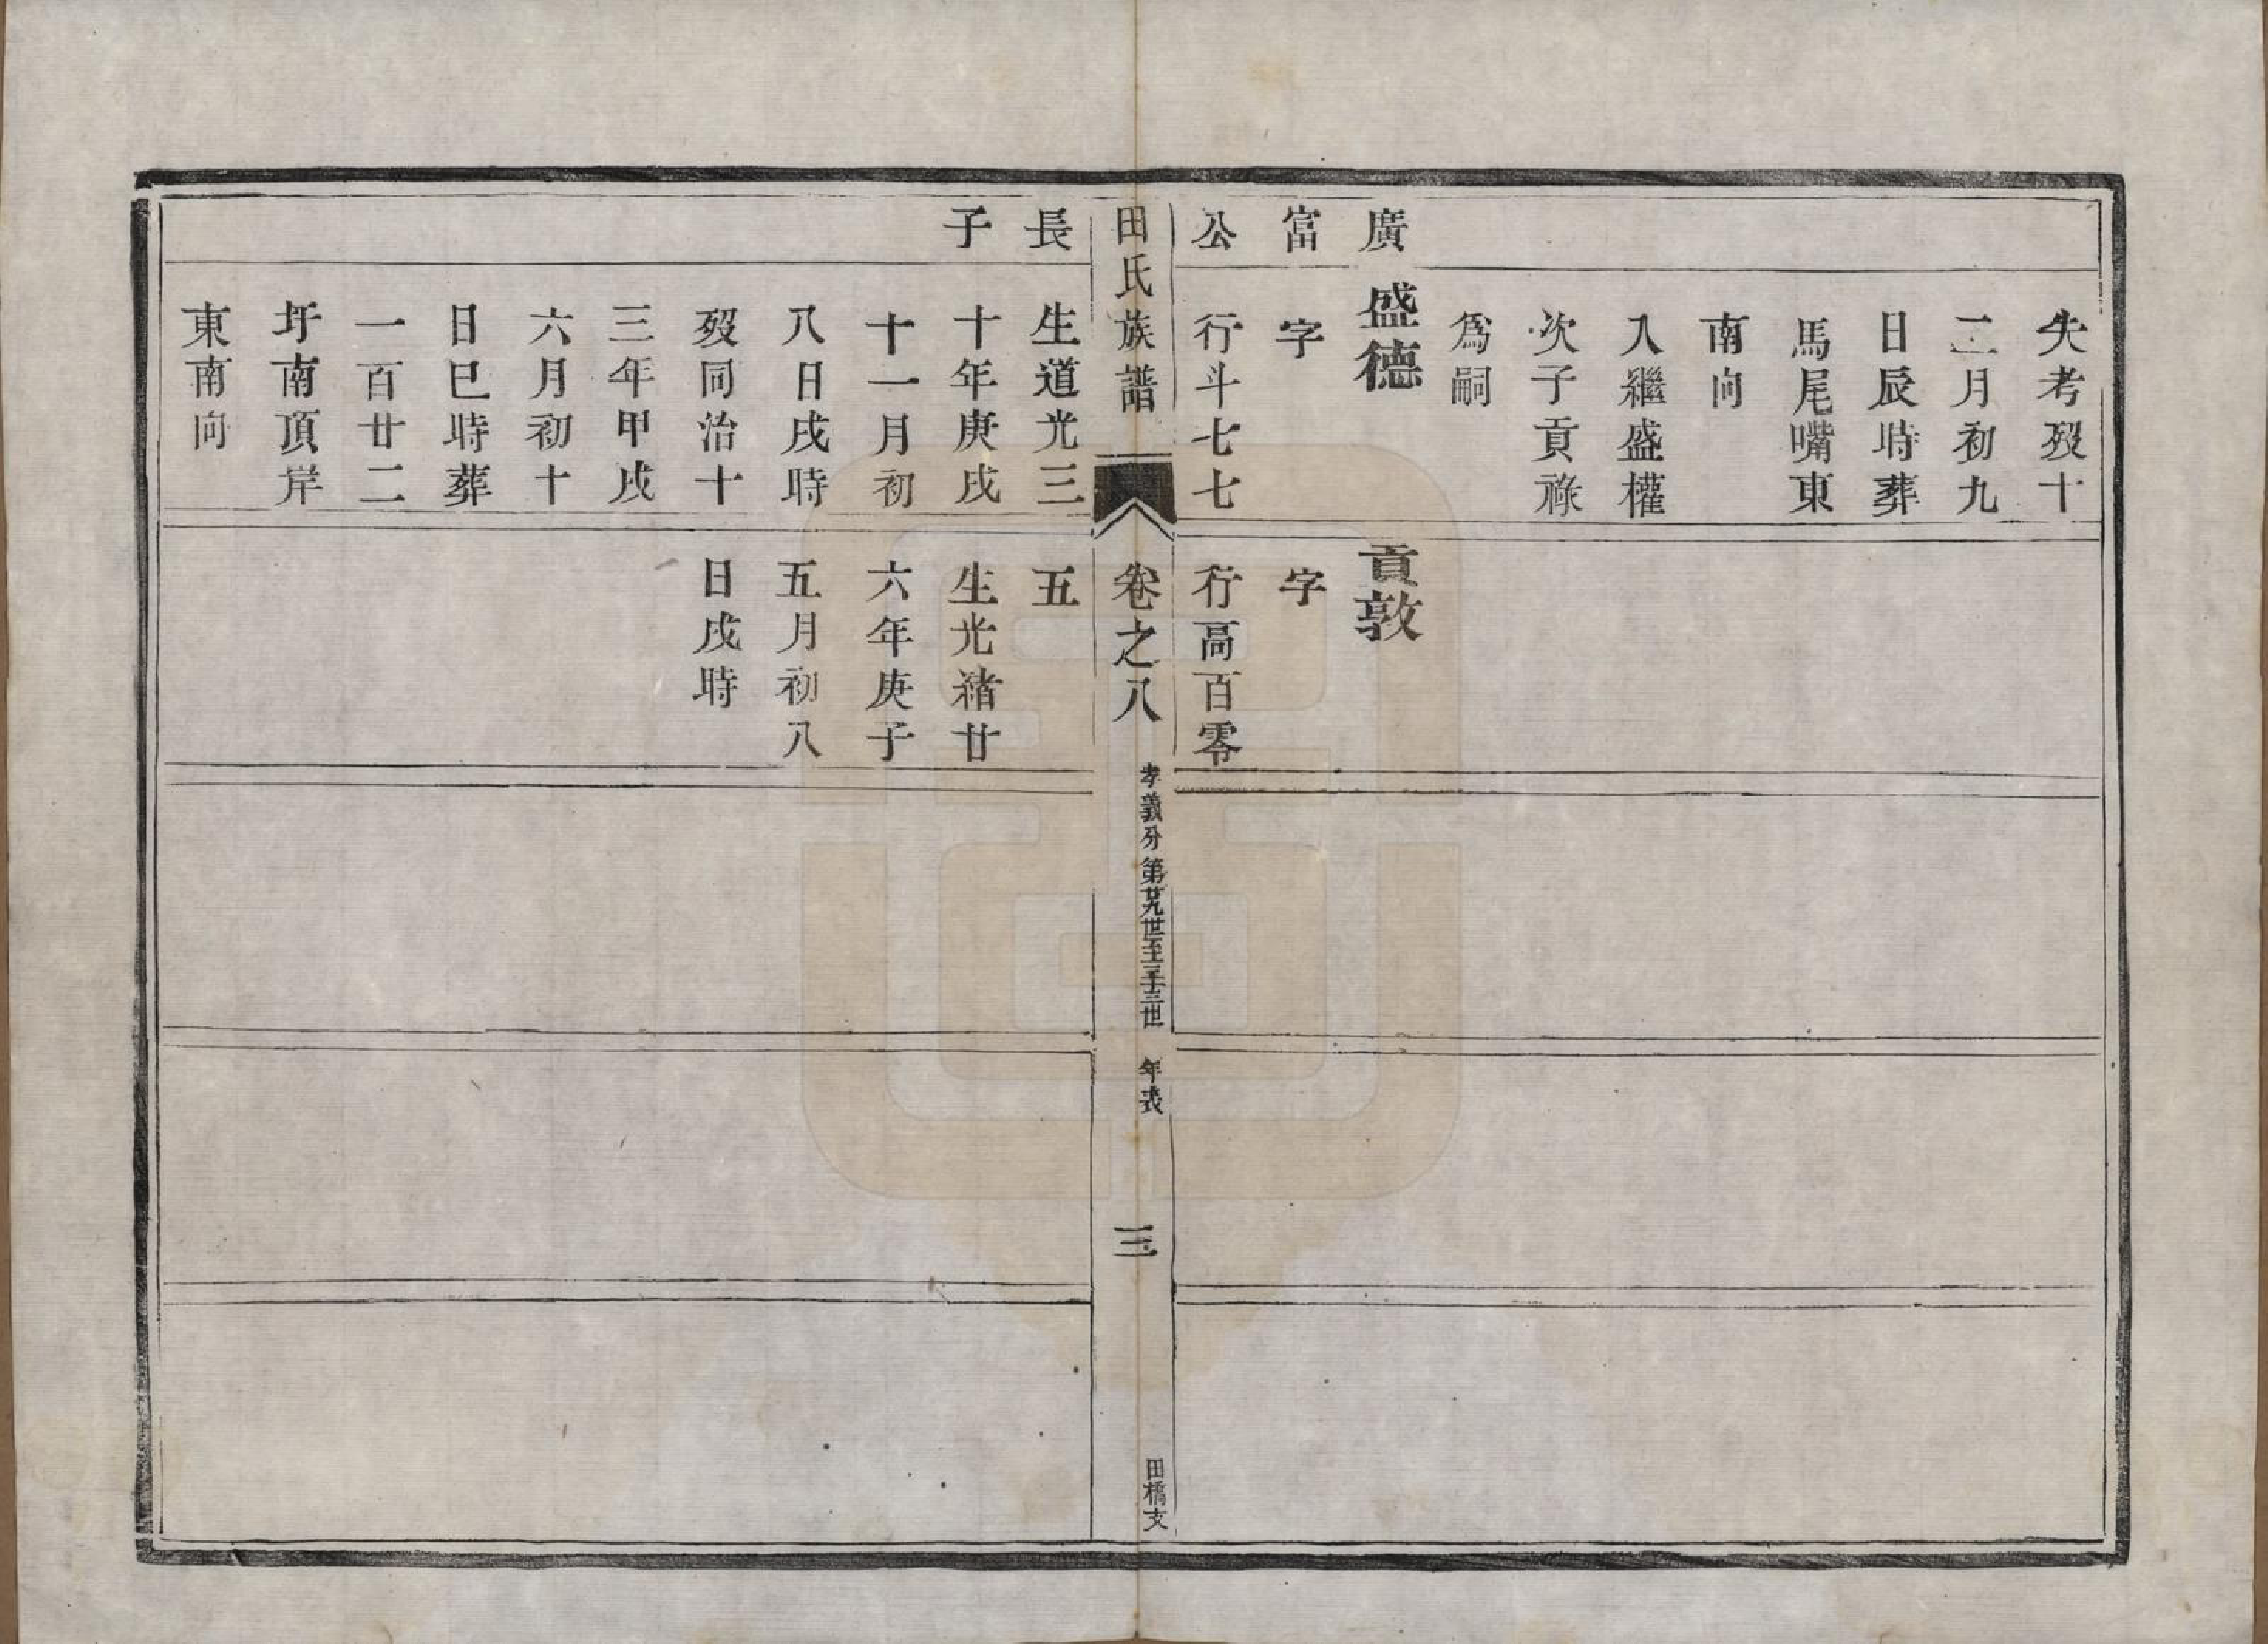 失考歿十
二月初九
日辰時葬
馬尾嘴東
南向
入繼盛權
次子貢祿
為嗣
廣
富
公
盛德
字
行斗七七
貢敦
字
行高百零
田氏族譜
卷之八
孝義分第廿九世至三十三世
年表
三
田橋支
長
子
生道光三
十年庚戌
十一月初
八日戌時
歿同治十
三年甲戌
六月初十
日巳時葬
一百廿二
圩南頂岸
東南向
五
生光緒廿
六年庚子
五月初八
日戌時